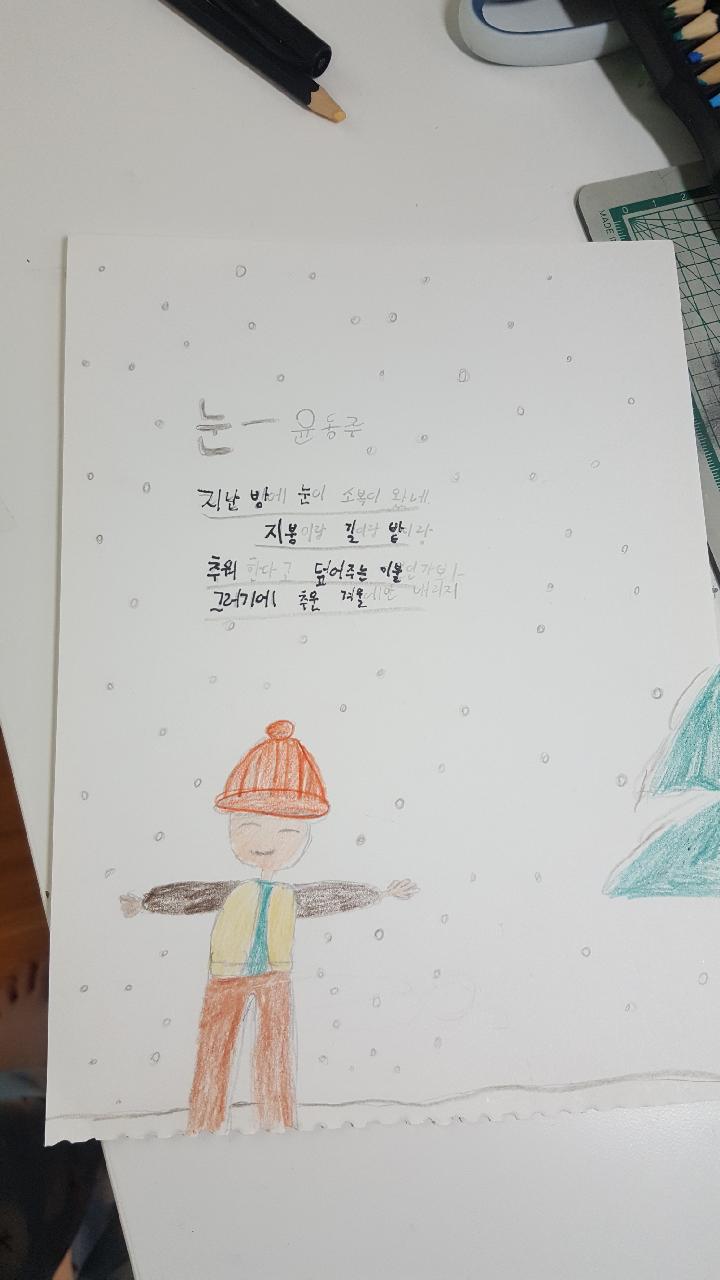 눈 - 윤동주
지난 밤에 눈이 소복이 왔네
지붕이랑 길이랑 밭이랑
추워 한다고 덮어주는 이불인가봐
그러기에 추운 겨울에만 내리지
0 1 2
MADE IN